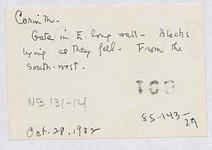 Corinth.
Gate in E. long wall - Blocks
lying as they fell. From the
South-west.
NB 131-14
SS-143-
29
Oct. 28, 1932